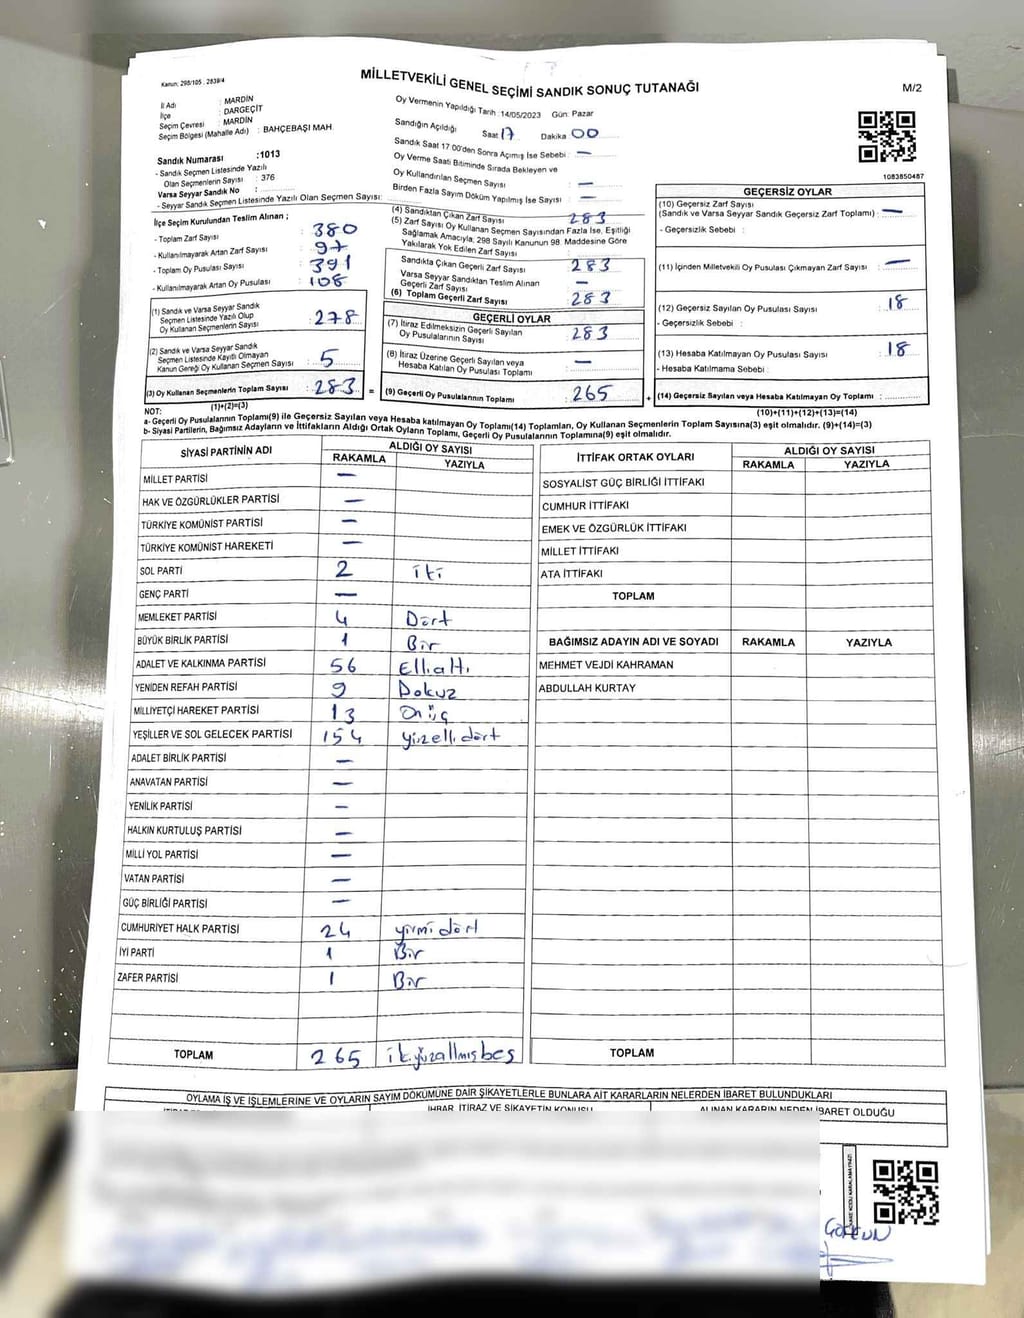 Kanun: 298/105 , 2839/4
MİLLETVEKİLİ GENEL SEÇİMİ SANDIK SONUÇ TUTANAĞI
M/2
İl Adı : MARDİN
İlçe : DARGEÇİT
Seçim Çevresi : MARDİN
Seçim Bölgesi (Mahalle Adı) : BAHÇEBAŞI MAH.
Sandık Numarası :1013
- Sandık Seçmen Listesinde Yazılı
Olan Seçmenlerin Sayısı : 376
Varsa Seyyar Sandık No :
- Seyyar Sandık Seçmen Listesinde Yazılı Olan Seçmen Sayısı:
Oy Vermenin Yapıldığı Tarih :14/05/2023 Gün: Pazar
Sandığın Açıldığı Saat 17 Dakika 00
Sandık Saat 17 00'den Sonra Açımış İse Sebebi : —
Oy Verme Saati Bitiminde Sırada Bekleyen ve
Oy Kullandırılan Seçmen Sayısı : —
Birden Fazla Sayım Döküm Yapılmış İse Sayısı : —
1083850487
İlçe Seçim Kurulundan Teslim Alınan ;
- Toplam Zarf Sayısı : 380
- Kullanılmayarak Artan Zarf Sayısı : 97
- Toplam Oy Pusulası Sayısı : 391
- Kullanılmayarak Artan Oy Pusulası : 108
(1) Sandık ve Varsa Seyyar Sandık
Seçmen Listesinde Yazılı Olup
Oy Kullanan Seçmenlerin Sayısı : 278
(2) Sandık ve Varsa Seyyar Sandık
Seçmen Listesinde Kayıtlı Olmayan
Kanun Gereği Oy Kullanan Seçmen Sayısı : 5
(3) Oy Kullanan Seçmenlerin Toplam Sayısı : 283 =
(1)+(2)=(3)
(4) Sandıktan Çıkan Zarf Sayısı : 283
(5) Zarf Sayısı Oy Kullanan Seçmen Sayısından Fazla İse, Eşitliği
Sağlamak Amacıyla, 298 Sayılı Kanunun 98. Maddesine Göre
Yakılarak Yok Edilen Zarf Sayısı :
Sandıkta Çıkan Geçerli Zarf Sayısı : 283
Varsa Seyyar Sandıktan Teslim Alınan
Geçerli Zarf Sayısı : —
(6) Toplam Geçerli Zarf Sayısı : 283
GEÇERLİ OYLAR
(7) İtiraz Edilmeksizin Geçerli Sayılan
Oy Pusulalarının Sayısı : 283
(8) İtiraz Üzerine Geçerli Sayılan veya
Hesaba Katılan Oy Pusulası Toplamı : —
(9) Geçerli Oy Pusulalarının Toplamı : 265 +
GEÇERSİZ OYLAR
(10) Geçersiz Zarf Sayısı
(Sandık ve Varsa Seyyar Sandık Geçersiz Zarf Toplamı) : —
- Geçersizlik Sebebi :
(11) İçinden Milletvekili Oy Pusulası Çıkmayan Zarf Sayısı : —
(12) Geçersiz Sayılan Oy Pusulası Sayısı : 18
- Geçersizlik Sebebi :
(13) Hesaba Katılmayan Oy Pusulası Sayısı : 18
- Hesaba Katılmama Sebebi :
(14) Geçersiz Sayılan veya Hesaba Katılmayan Oy Pusulası Toplamı :
(10)+(11)+(12)+(13)=(14)
NOT:
a- Geçerli Oy Pusulalarının Toplamı(9) ile Geçersiz Sayılan veya Hesaba katılmayan Oy Toplamı(14) Toplamları, Oy Kullanan Seçmenlerin Toplam Sayısına(3) eşit olmalıdır. (9)+(14)=(3)
b- Siyasi Partilerin, Bağımsız Adayların ve İttifakların Aldığı Ortak Oyların Toplamı, Geçerli Oy Pusulalarının Toplamına(9) eşit olmalıdır.
SİYASİ PARTİNİN ADI ALDIĞI OY SAYISI
RAKAMLA YAZIYLA
MİLLET PARTİSİ —
HAK VE ÖZGÜRLÜKLER PARTİSİ —
TÜRKİYE KOMÜNİST PARTİSİ —
TÜRKİYE KOMÜNİST HAREKETİ —
SOL PARTİ 2 iki
GENÇ PARTİ —
MEMLEKET PARTİSİ 4 Dört
BÜYÜK BİRLİK PARTİSİ 1 Bir
ADALET VE KALKINMA PARTİSİ 56 Ellialtı
YENİDEN REFAH PARTİSİ 9 Dokuz
MİLLİYETÇİ HAREKET PARTİSİ 13 Onüç
YEŞİLLER VE SOL GELECEK PARTİSİ 154 yüzellidört
ADALET BİRLİK PARTİSİ —
ANAVATAN PARTİSİ —
YENİLİK PARTİSİ —
HALKIN KURTULUŞ PARTİSİ —
MİLLİ YOL PARTİSİ —
VATAN PARTİSİ —
GÜÇ BİRLİĞİ PARTİSİ —
CUMHURİYET HALK PARTİSİ 24 yirmi dört
İYİ PARTİ 1 Bir
ZAFER PARTİSİ 1 Bir
TOPLAM 265 ikiyüzaltmışbeş
İTTİFAK ORTAK OYLARI ALDIĞI OY SAYISI
RAKAMLA YAZIYLA
SOSYALİST GÜÇ BİRLİĞİ İTTİFAKI
CUMHUR İTTİFAKI
EMEK VE ÖZGÜRLÜK İTTİFAKI
MİLLET İTTİFAKI
ATA İTTİFAKI
TOPLAM
BAĞIMSIZ ADAYIN ADI VE SOYADI RAKAMLA YAZIYLA
MEHMET VEJDİ KAHRAMAN
ABDULLAH KURTAY
TOPLAM
OYLAMA İŞ VE İŞLEMLERİNE VE OYLARIN SAYIM DÖKÜMÜNE DAİR ŞİKAYETLERLE BUNLARA AİT KARARLARIN NELERDEN İBARET BULUNDUKLARI
İHBAR, İTİRAZ VE ŞİKAYETİN KONUSU ALINAN KARARIN NEDEN İBARET OLDUĞU